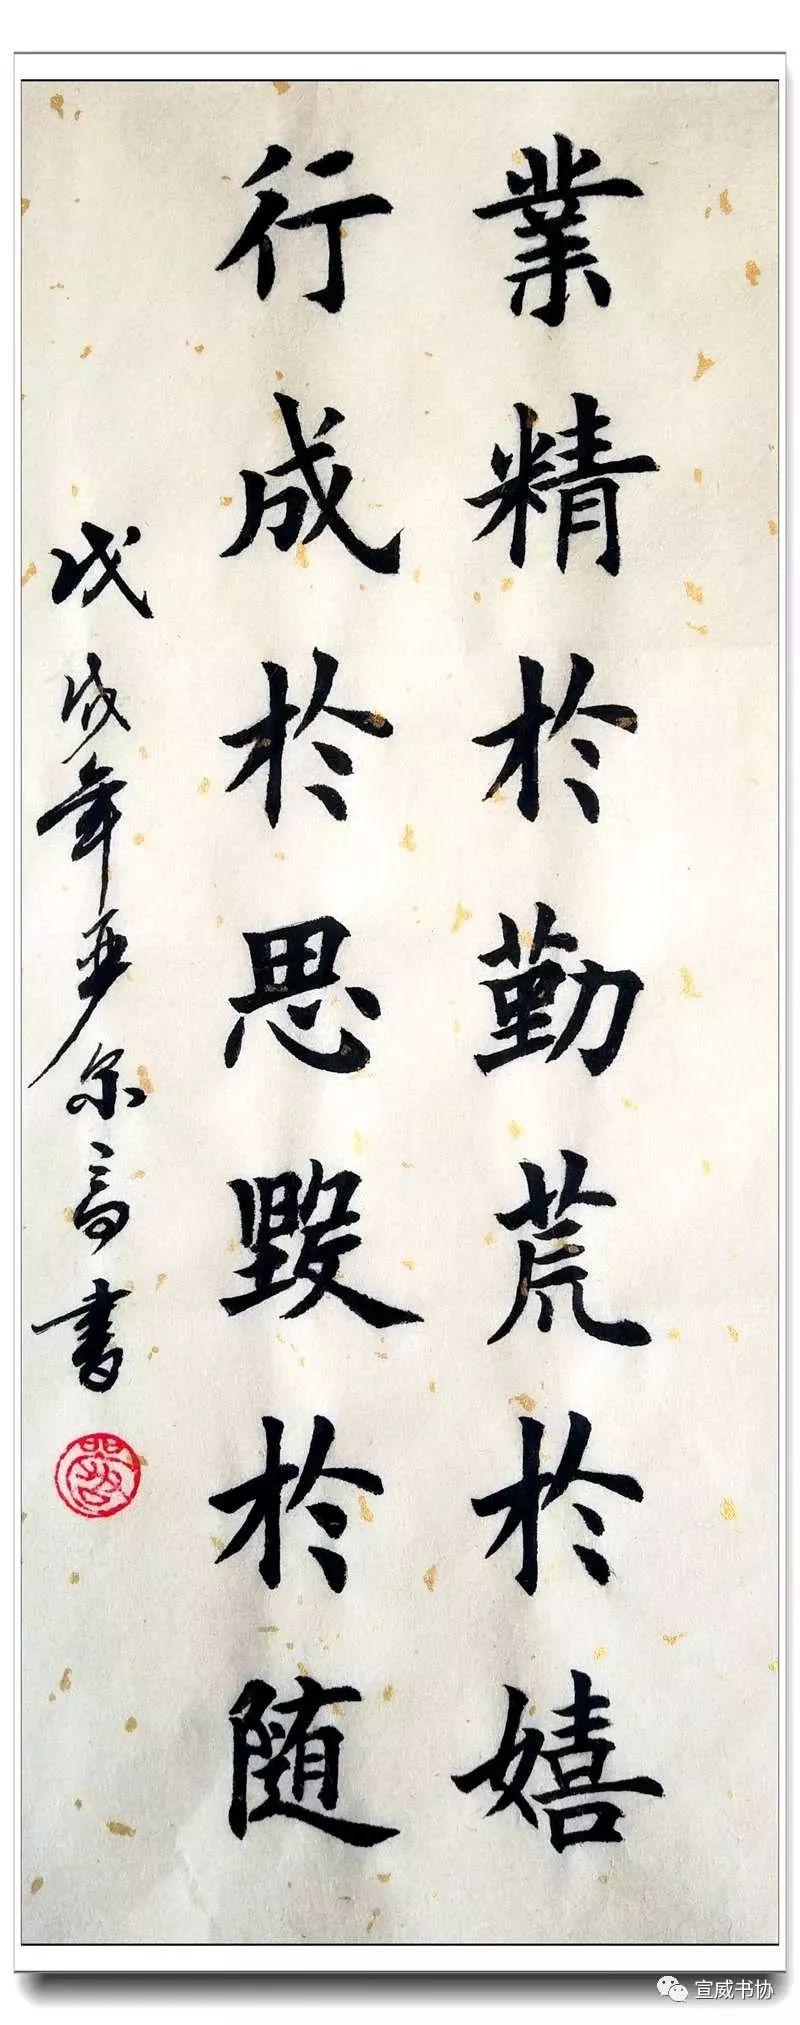 業精於勤荒於嬉
行成於思毀於随
戊戌年亚尔高書
宣威书协